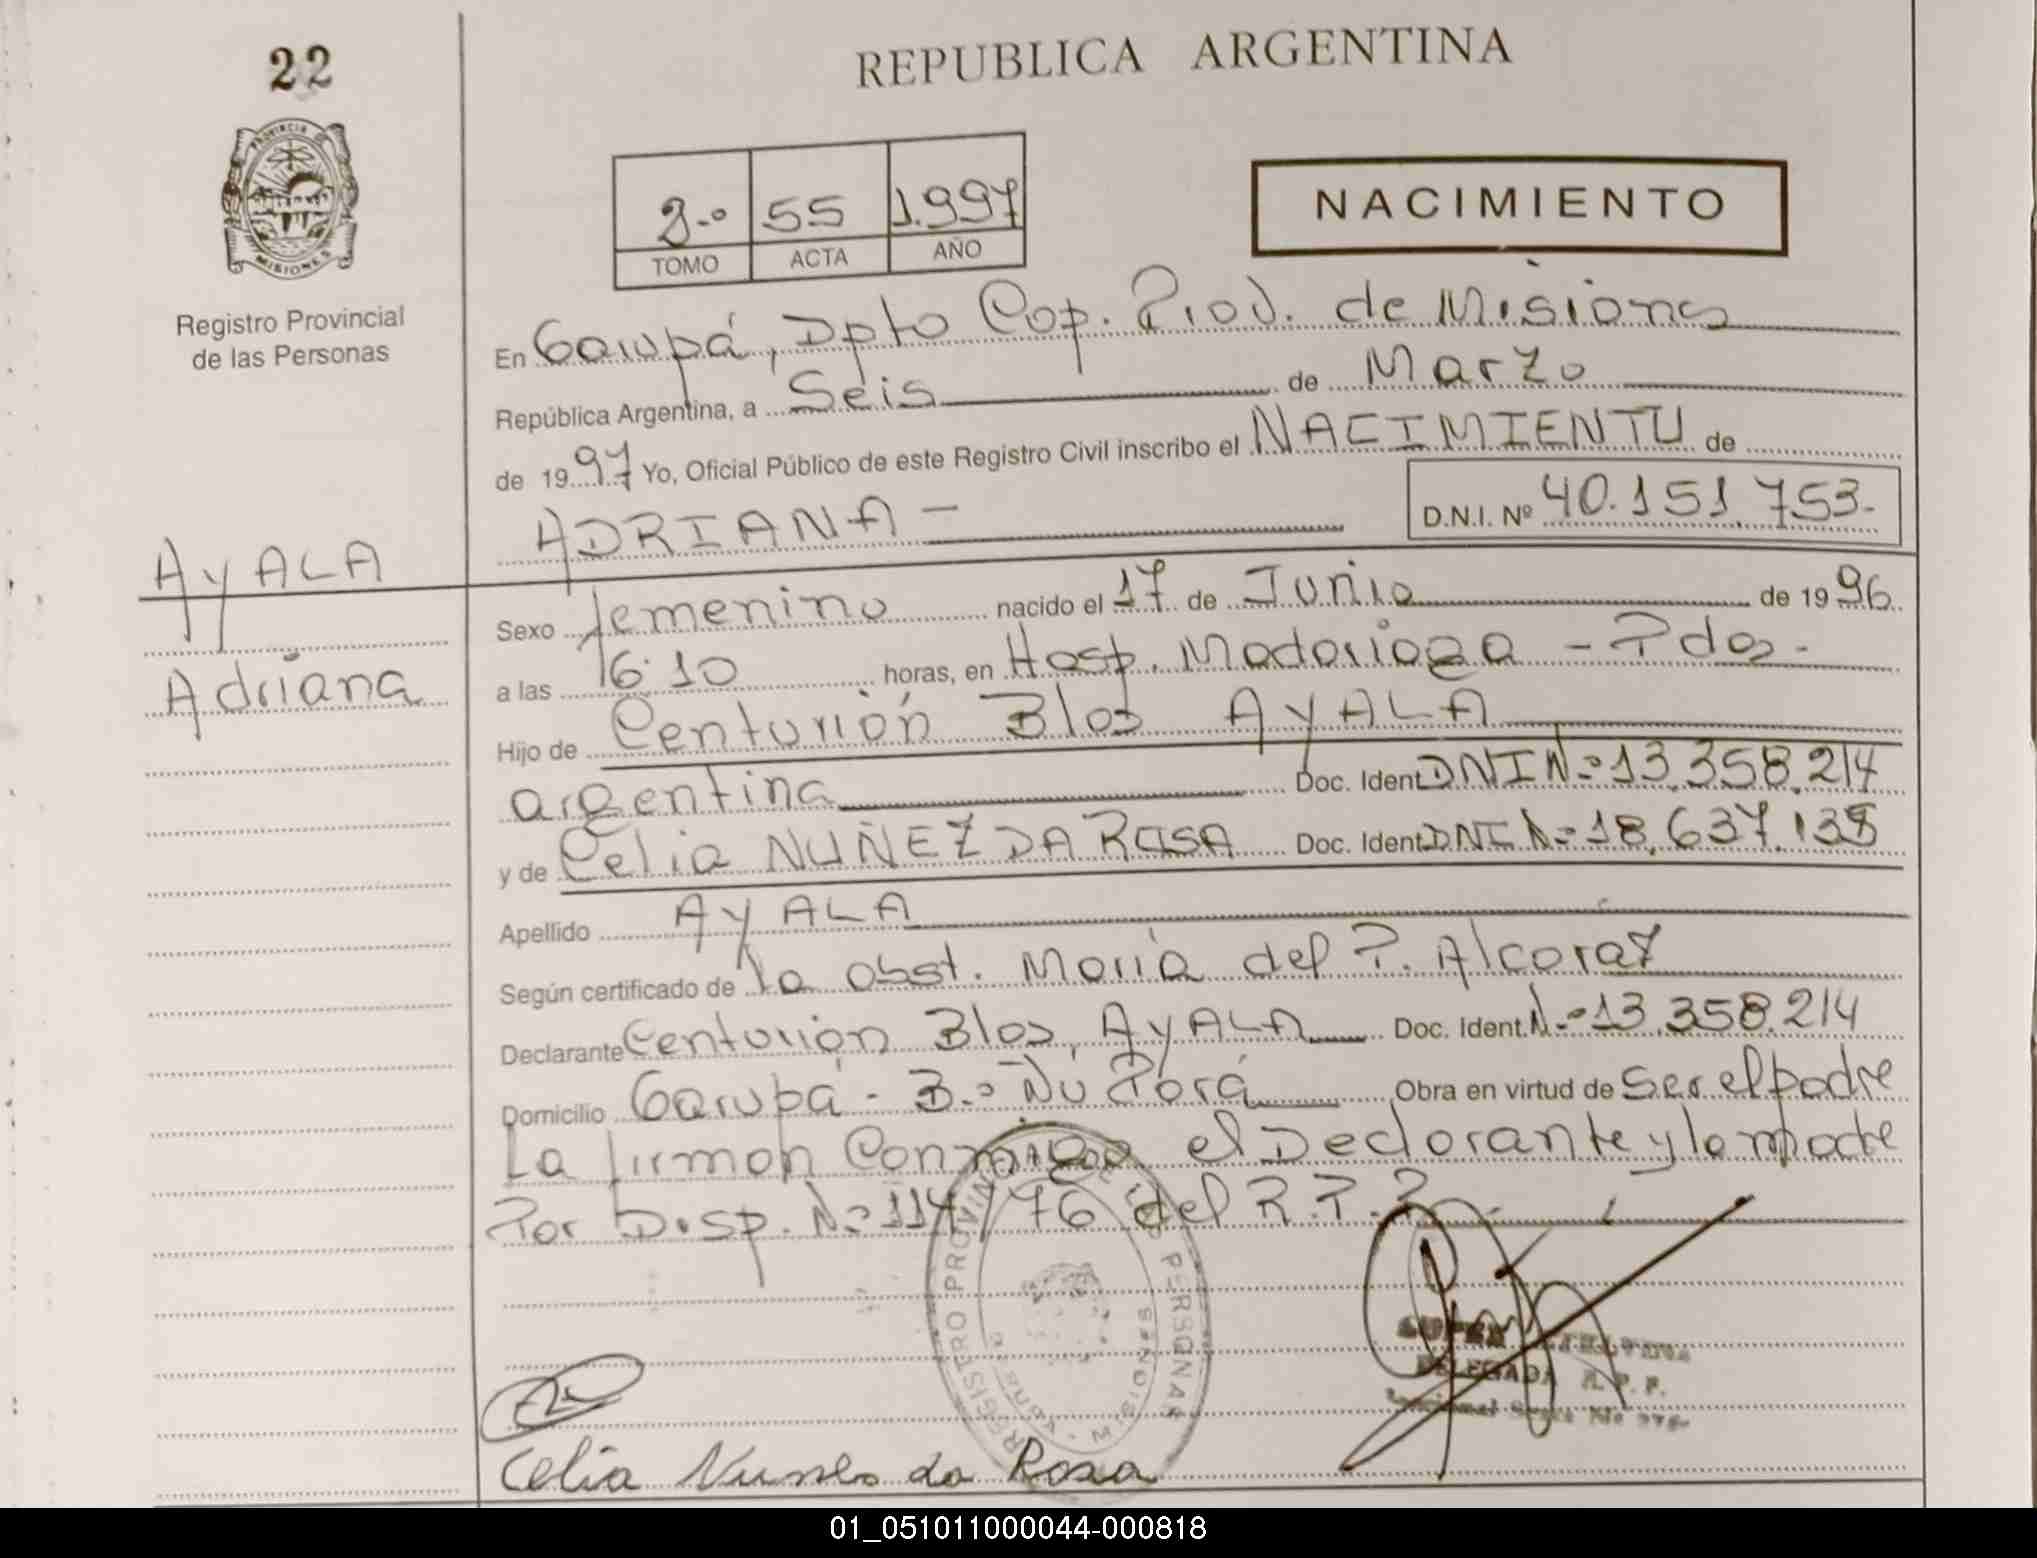 22
REPUBLICA ARGENTINA
PROVINCIA
MISIONES
Registro Provincial
de las Personas
2.º 55 1.997
TOMO ACTA AÑO
NACIMIENTO
En Garupá, Dpto Cap. Prov. de Misiones
República Argentina, a Seis de Marzo
de 1997 Yo, Oficial Público de este Registro Civil inscribo el NACIMIENTO de
ADRIANA - D.N.I. Nº 40.151.753.-
AYALA
Adriana
Sexo femenino nacido el 17 de Junio de 1996
a las 16:10 horas, en Hosp. Madariaga - Pdas -
Hijo de Centurión Blas AYALA
argentina Doc. Ident. DNI Nº 13.358.214
y de Celia NUÑEZ DA ROSA Doc. Ident. DNI Nº 18.637.138
Apellido AYALA
Según certificado de la obst. María del P. Alcaraz
Declarante Centurión Blas, AYALA Doc. Ident. Nº 13.358.214
Domicilio Garupá - Bº Ñu Porá Obra en virtud de ser el padre
La firman conmigo el Declarante y la madre
Por Disp. Nº 114/76 del R.P.P
REGISTRO PROVINCIAL DE LAS PERSONAS
MISIONES
DELEGADA R. P. P.
Celia Nunes da Rosa
01_051011000044-000818